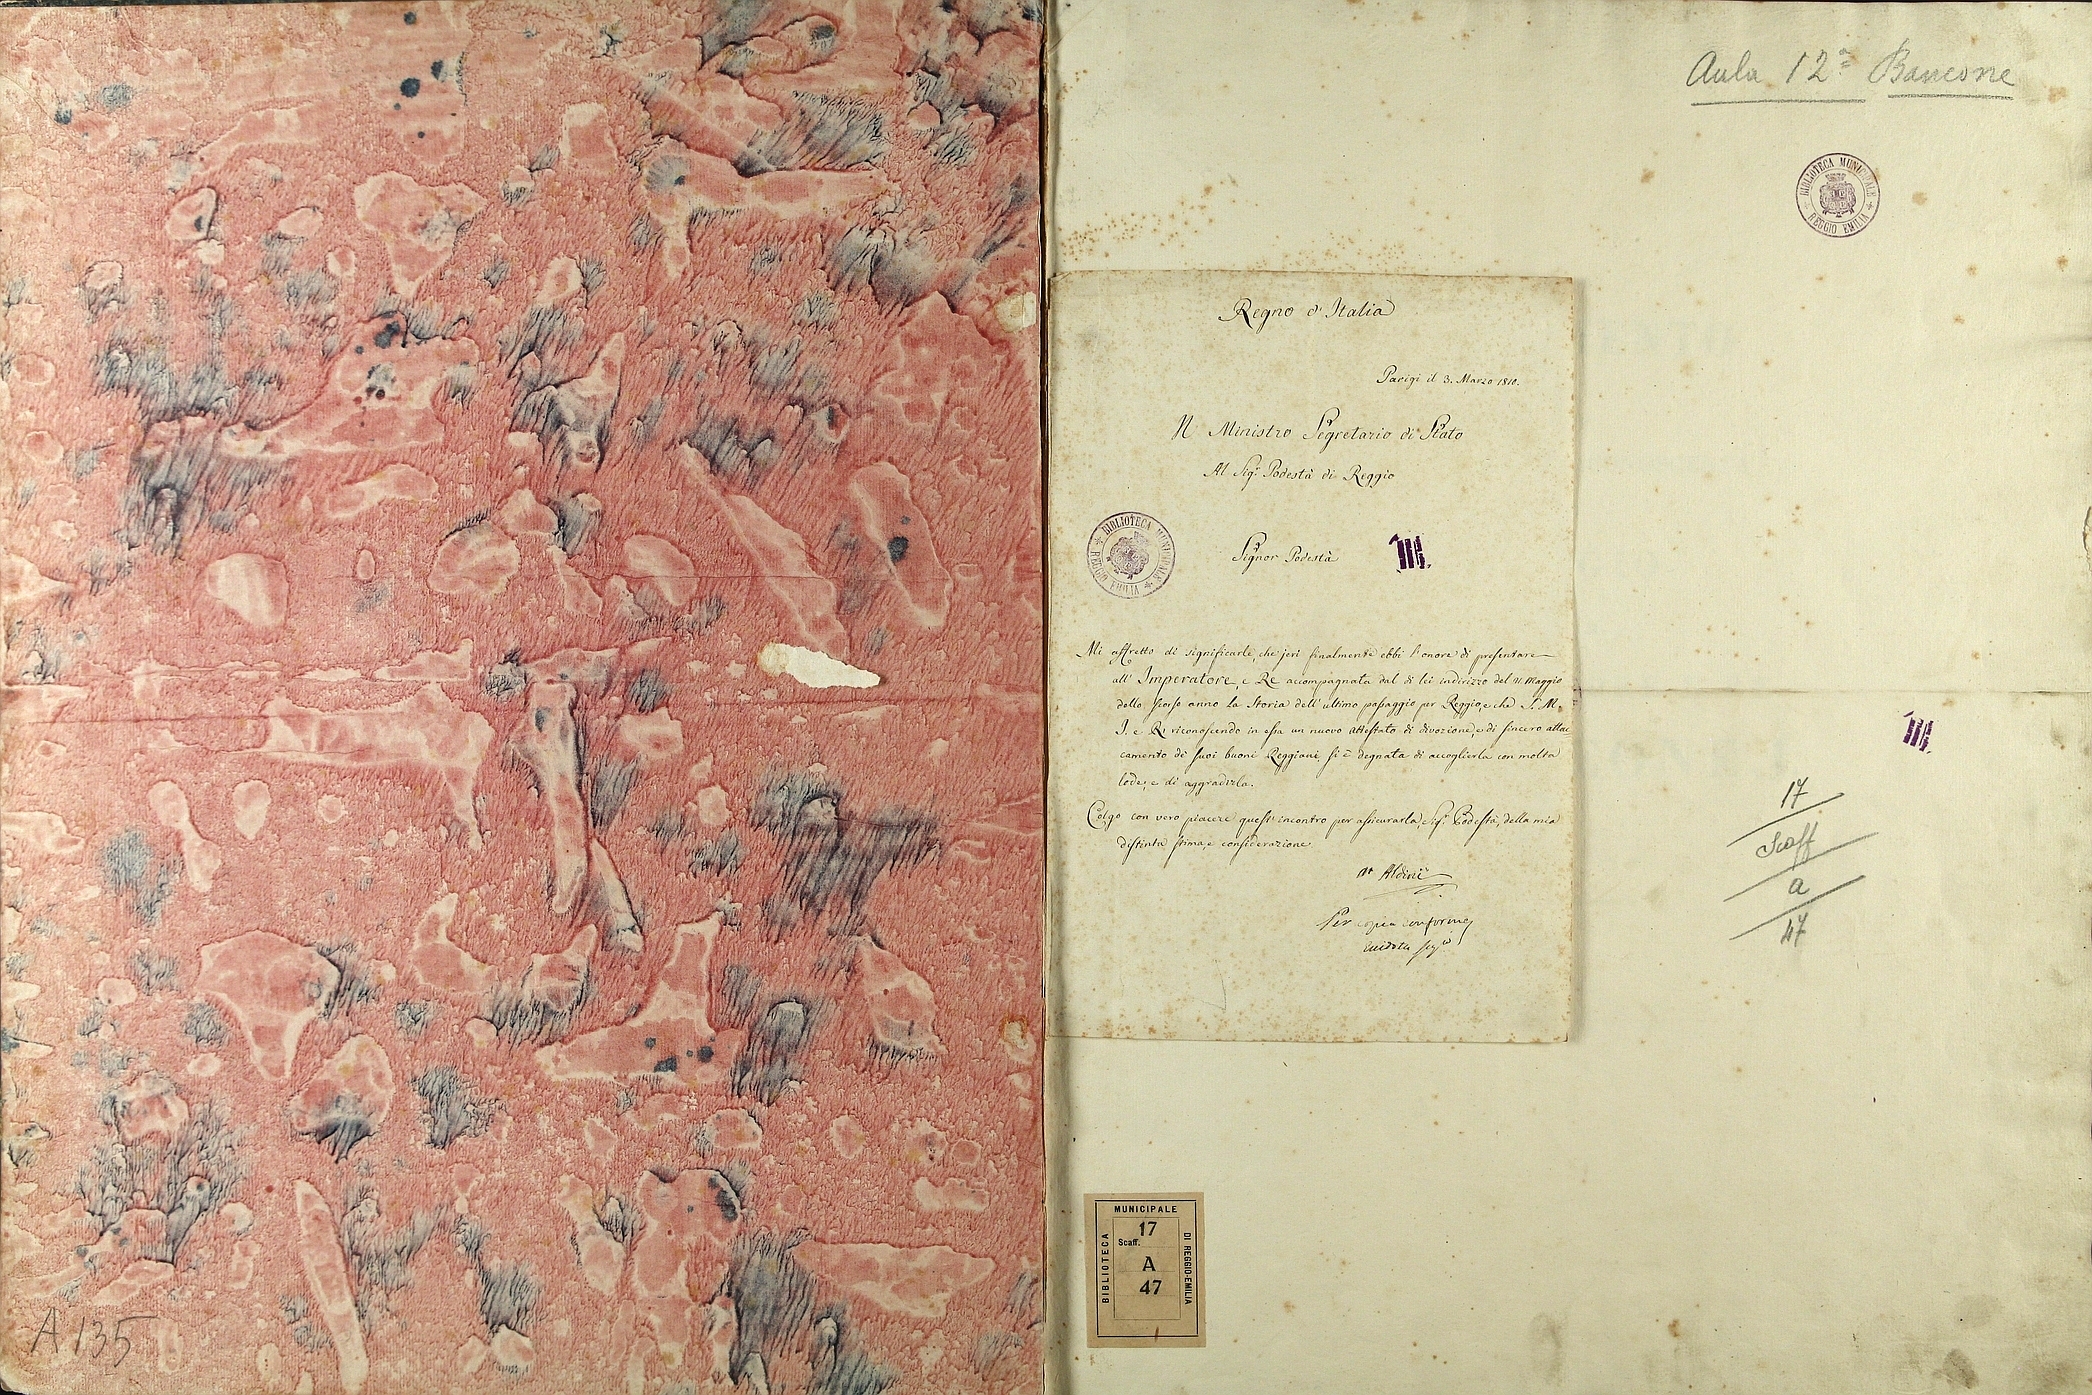 Aula 12ª Bancone
BIBLIOTECA MUNICIPALE
REGGIO EMILIA
Regno d'Italia
Parigi il 3. Marzo 1810.
Il Ministro Segretario di Stato
Al Sigr. Podestà di Reggio
BIBLIOTECA MUNICIPALE
REGGIO EMILIA
Signor Podestà
Mi affretto di significarle, che jeri finalmente ebbi l'onore di presentare
all' Imperatore, e Re accompagnata dal di lei indirizzo del 11 Maggio
dello scorso anno la Storia dell' ultimo passaggio per Reggio, e che S. M.
I. e R. riconoscendo in essa un nuovo attestato di divozione, e di sincero attac
camento de' suoi buoni Reggiani, si è degnata di accoglierla con molta
lode, e di aggradirla.
Colgo con vero piacere quest' incontro per assicurarla, Sigr. Podestà, della mia
distinta stima, e considerazione
Aldini
Per copia conforme
Segrio
17
Scaff
a
47
MUNICIPALE
BIBLIOTECA
DI REGGIO-EMILIA
17
Scaff.
A
47
A 135